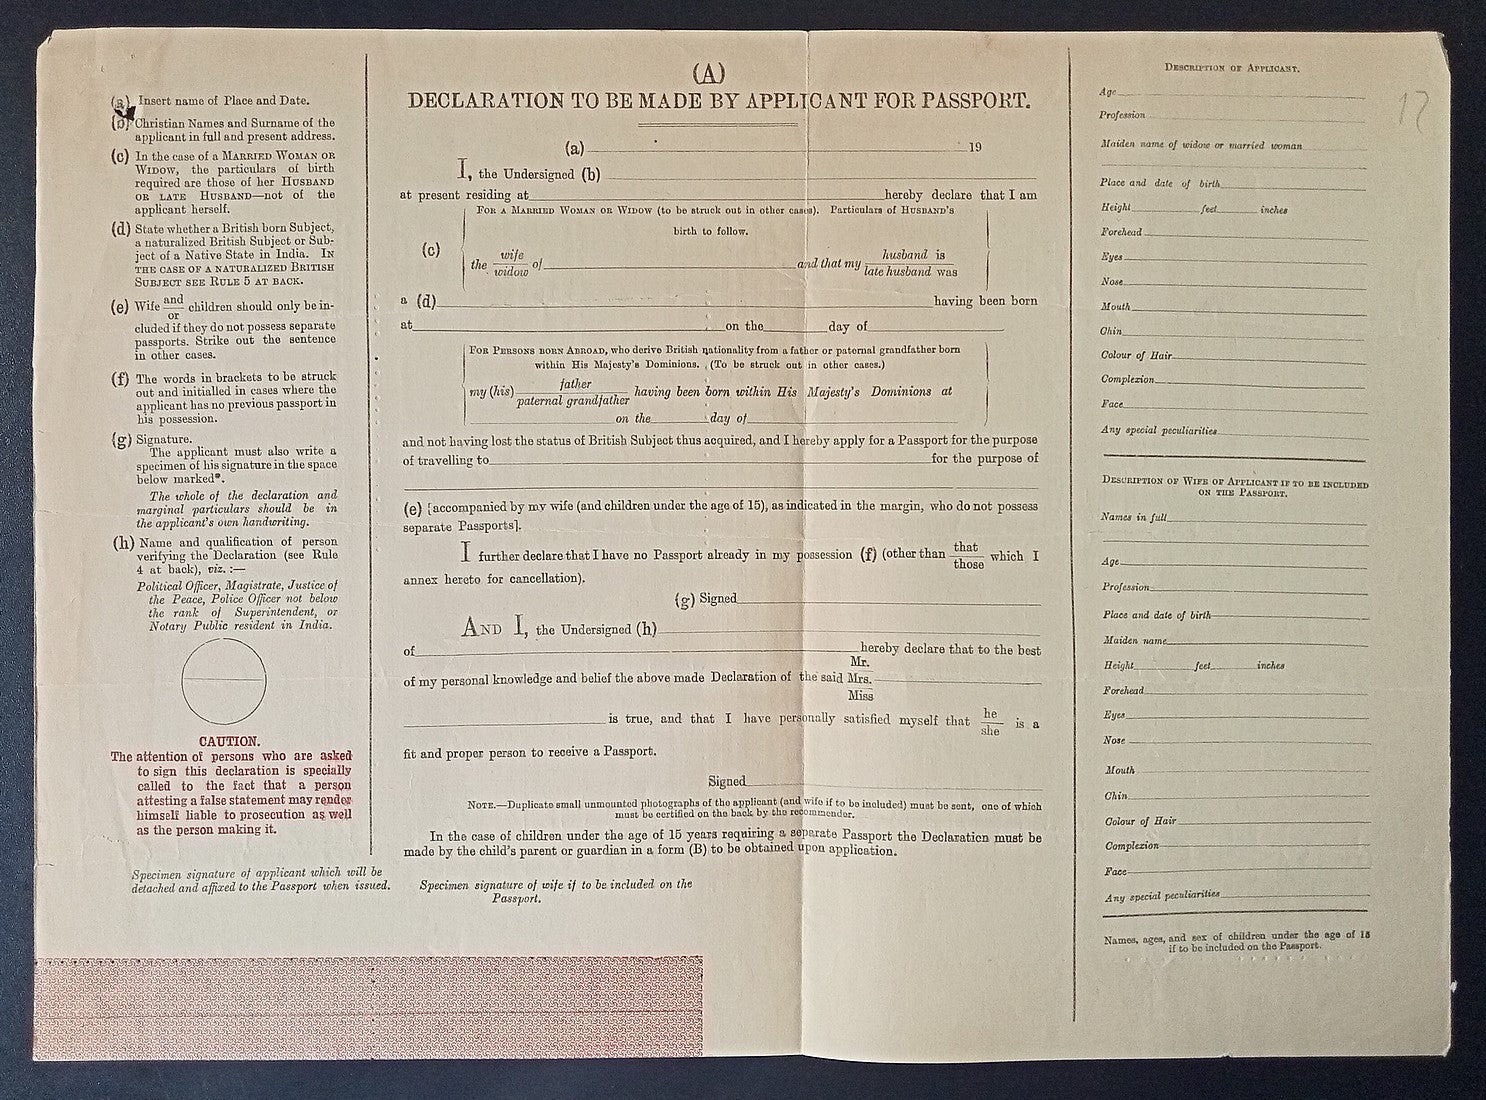 (a) Insert name of Place and Date.
(b) Christian Names and Surname of the
applicant in full and present address.
(c) In the case of a MARRIED WOMAN OR
WIDOW, the particulars of birth
required are those of her HUSBAND
OR LATE HUSBAND—not of the
applicant herself.
(d) State whether a British born Subject,
a naturalized British Subject or Sub-
ject of a Native State in India. IN
THE CASE OF A NATURALIZED BRITISH
SUBJECT SEE RULE 5 AT BACK.
(e) Wife and/or children should only be in-
cluded if they do not possess separate
passports. Strike out the sentence
in other cases.
(f) The words in brackets to be struck
out and initialled in cases where the
applicant has no previous passport in
his possession.
(g) Signature.
The applicant must also write a
specimen of his signature in the space
below marked*.
The whole of the declaration and
marginal particulars should be in
the applicant's own handwriting.
(h) Name and qualification of person
verifying the Declaration (see Rule
4 at back), viz. :—
Political Officer, Magistrate, Justice of
the Peace, Police Officer not below
the rank of Superintendent, or
Notary Public resident in India.
CAUTION.
The attention of persons who are asked
to sign this declaration is specially
called to the fact that a person
attesting a false statement may render
himself liable to prosecution as well
as the person making it.
Specimen signature of applicant which will be
detached and affixed to the Passport when issued.
(A)
DECLARATION TO BE MADE BY APPLICANT FOR PASSPORT.
(a) 19
I, the Undersigned (b)
at present residing at hereby declare that I am
FOR A MARRIED WOMAN OR WIDOW (to be struck out in other cases). Particulars of HUSBAND'S
birth to follow.
(c) the wife/widow of and that my husband is/late husband was
a (d) having been born
at on the day of
FOR PERSONS BORN ABROAD, who derive British nationality from a father or paternal grandfather born
within His Majesty's Dominions. (To be struck out in other cases.)
my (his) father/paternal grandfather having been born within His Majesty's Dominions at
on the day of
and not having lost the status of British Subject thus acquired, and I hereby apply for a Passport for the purpose
of travelling to for the purpose of
(e) [accompanied by my wife (and children under the age of 15), as indicated in the margin, who do not possess
separate Passports].
I further declare that I have no Passport already in my possession (f) (other than that/those which I
annex hereto for cancellation).
(g) Signed
AND I, the Undersigned (h)
of hereby declare that to the best
of my personal knowledge and belief the above made Declaration of the said Mr./Mrs./Miss
is true, and that I have personally satisfied myself that he/she is a
fit and proper person to receive a Passport.
Signed
NOTE.—Duplicate small unmounted photographs of the applicant (and wife if to be included) must be sent, one of which
must be certified on the back by the recommender.
In the case of children under the age of 15 years requiring a separate Passport the Declaration must be
made by the child's parent or guardian in a form (B) to be obtained upon application.
Specimen signature of wife if to be included on the
Passport.
12
DESCRIPTION OF APPLICANT.
Age
Profession
Maiden name of widow or married woman
Place and date of birth
Height feet inches
Forehead
Eyes
Nose
Mouth
Chin
Colour of Hair
Complexion
Face
Any special peculiarities
DESCRIPTION OF WIFE OF APPLICANT IF TO BE INCLUDED
ON THE PASSPORT.
Names in full
Age
Profession
Place and date of birth
Maiden name
Height feet inches
Forehead
Eyes
Nose
Mouth
Chin
Colour of Hair
Complexion
Face
Any special peculiarities
Names, ages, and sex of children under the age of 15
if to be included on the Passport.